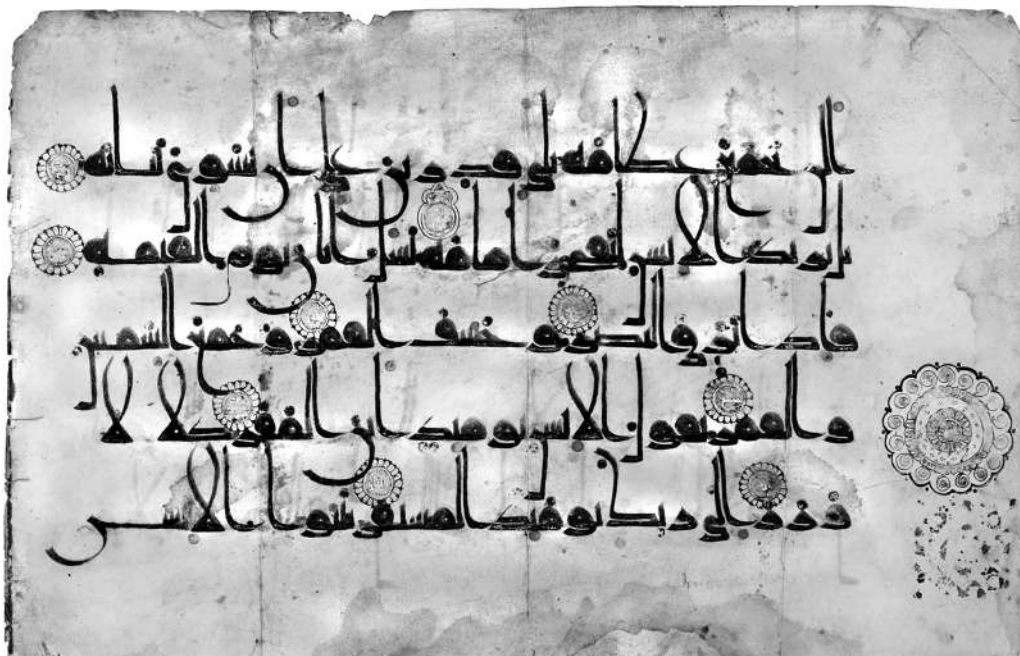 الن نجمع عظامه بلى قدرين على ان نسوى بنانه
بل يريد الانسن ليفجر امامه يسل ايان يوم القيمه
فاذا برق البصر وخسف القمر وجمع الشمس
والقمر يقول الانسن يومئذ اين المفر كلا لا
وزر الى ربك يومئذ المستقر ينبوا الانسن